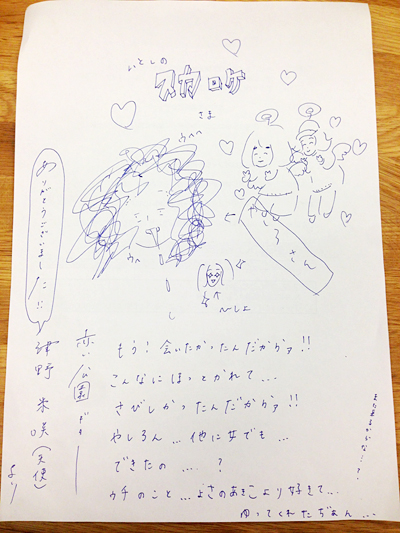 いとしの
スカロケ
さま
ウヘヘ
ウヘ
やしろさん
〜しょ
ありがとうございました!!
恋い公園デター
津野 米咲(天使)より
もう!会いたかったんだからァ!!
こんなにほっとかれて...
さびしかったんだからァ!!
やしろん...他に女でも...
できたの....?
ウチのこと...よさのあきこより好きって...
ゆってくれたぢぁん...